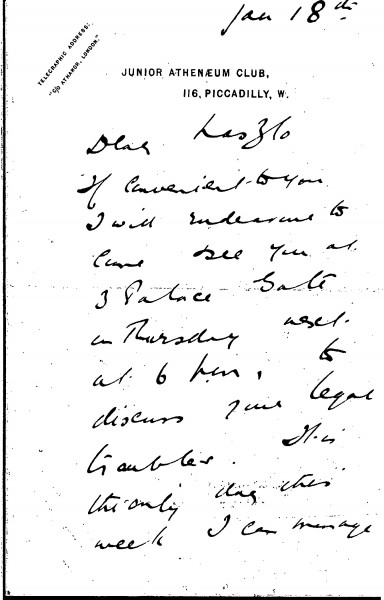 Jan 18th
TELEGRAPHIC ADDRESS:
"C/O ATHANOR, LONDON."
JUNIOR ATHENÆUM CLUB,
116, PICCADILLY, W.
Dear Laszlo
If convenient to you
I will endeavour to
come see you at
3 Palace Gate
on Thursday next
at 6 p.m. to
discuss your legal
troubles. It is
the only day this
week I can manage